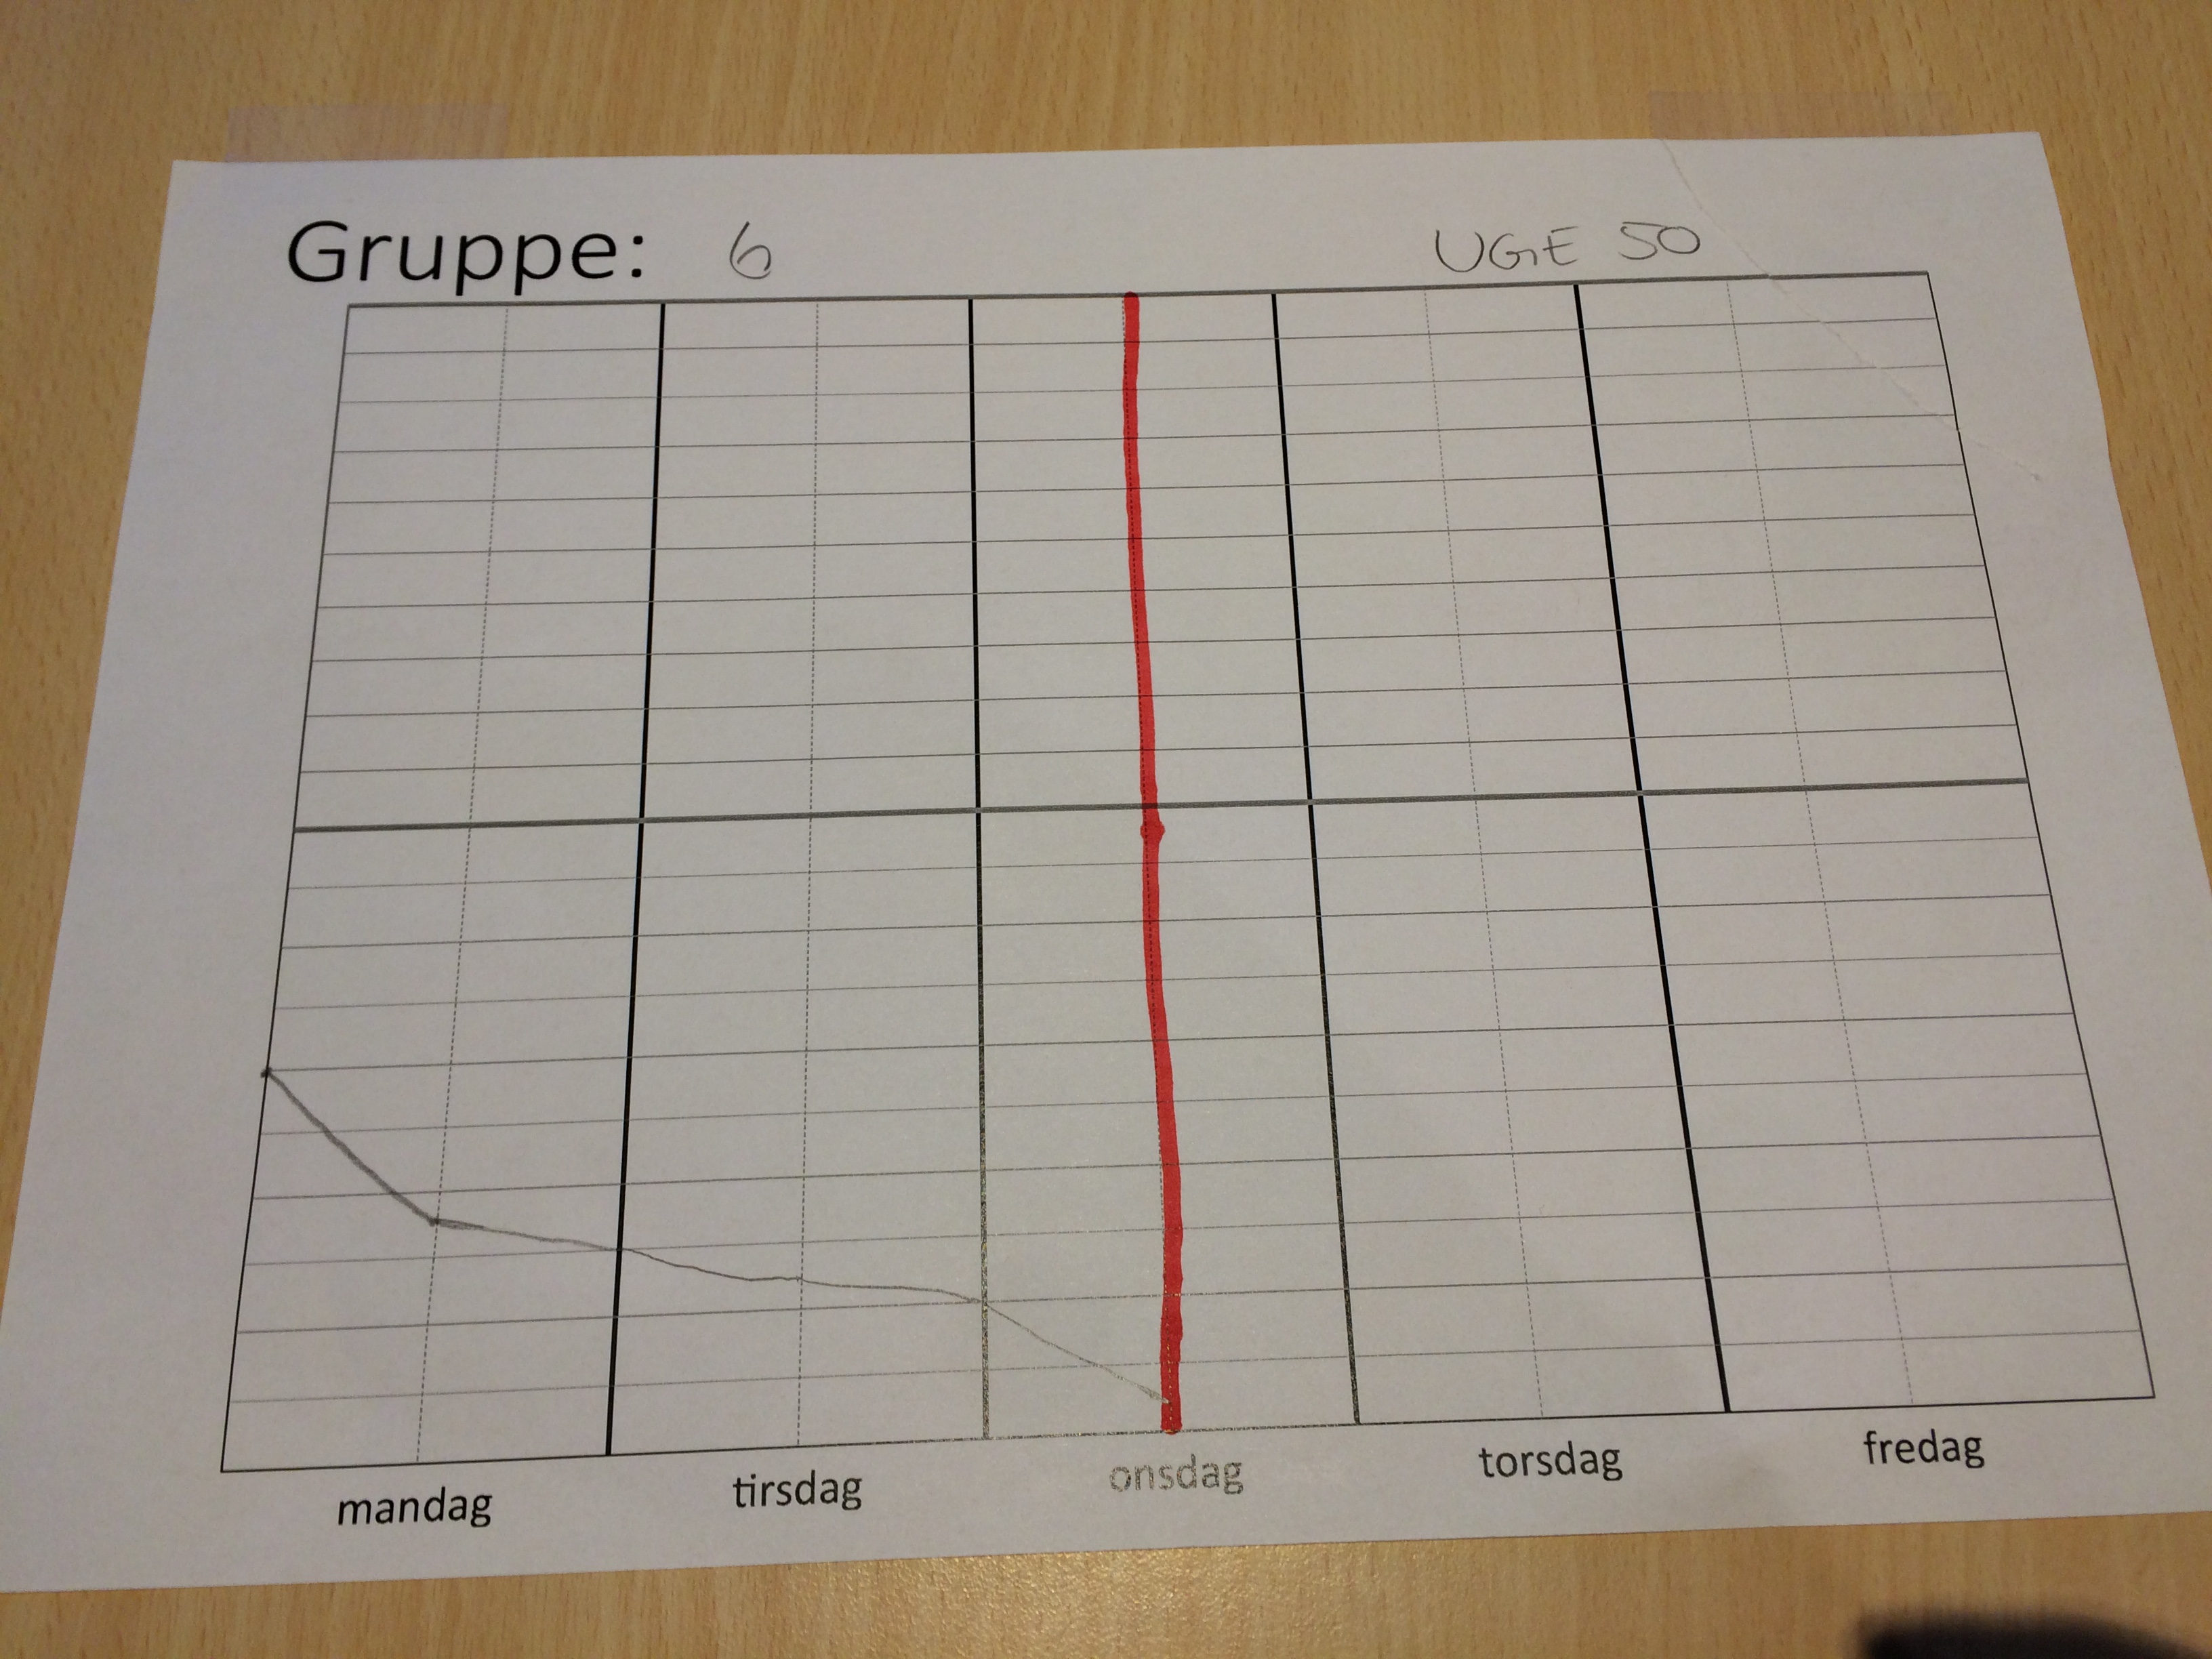 Gruppe: 6 UGE 50
mandag tirsdag onsdag torsdag fredag